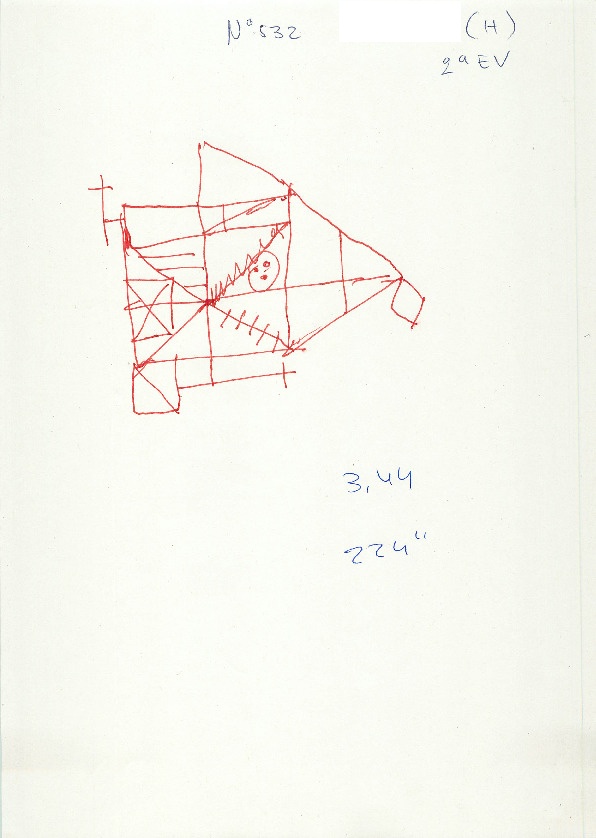 Nº 532 (H)
2ª EV
3,44
224"